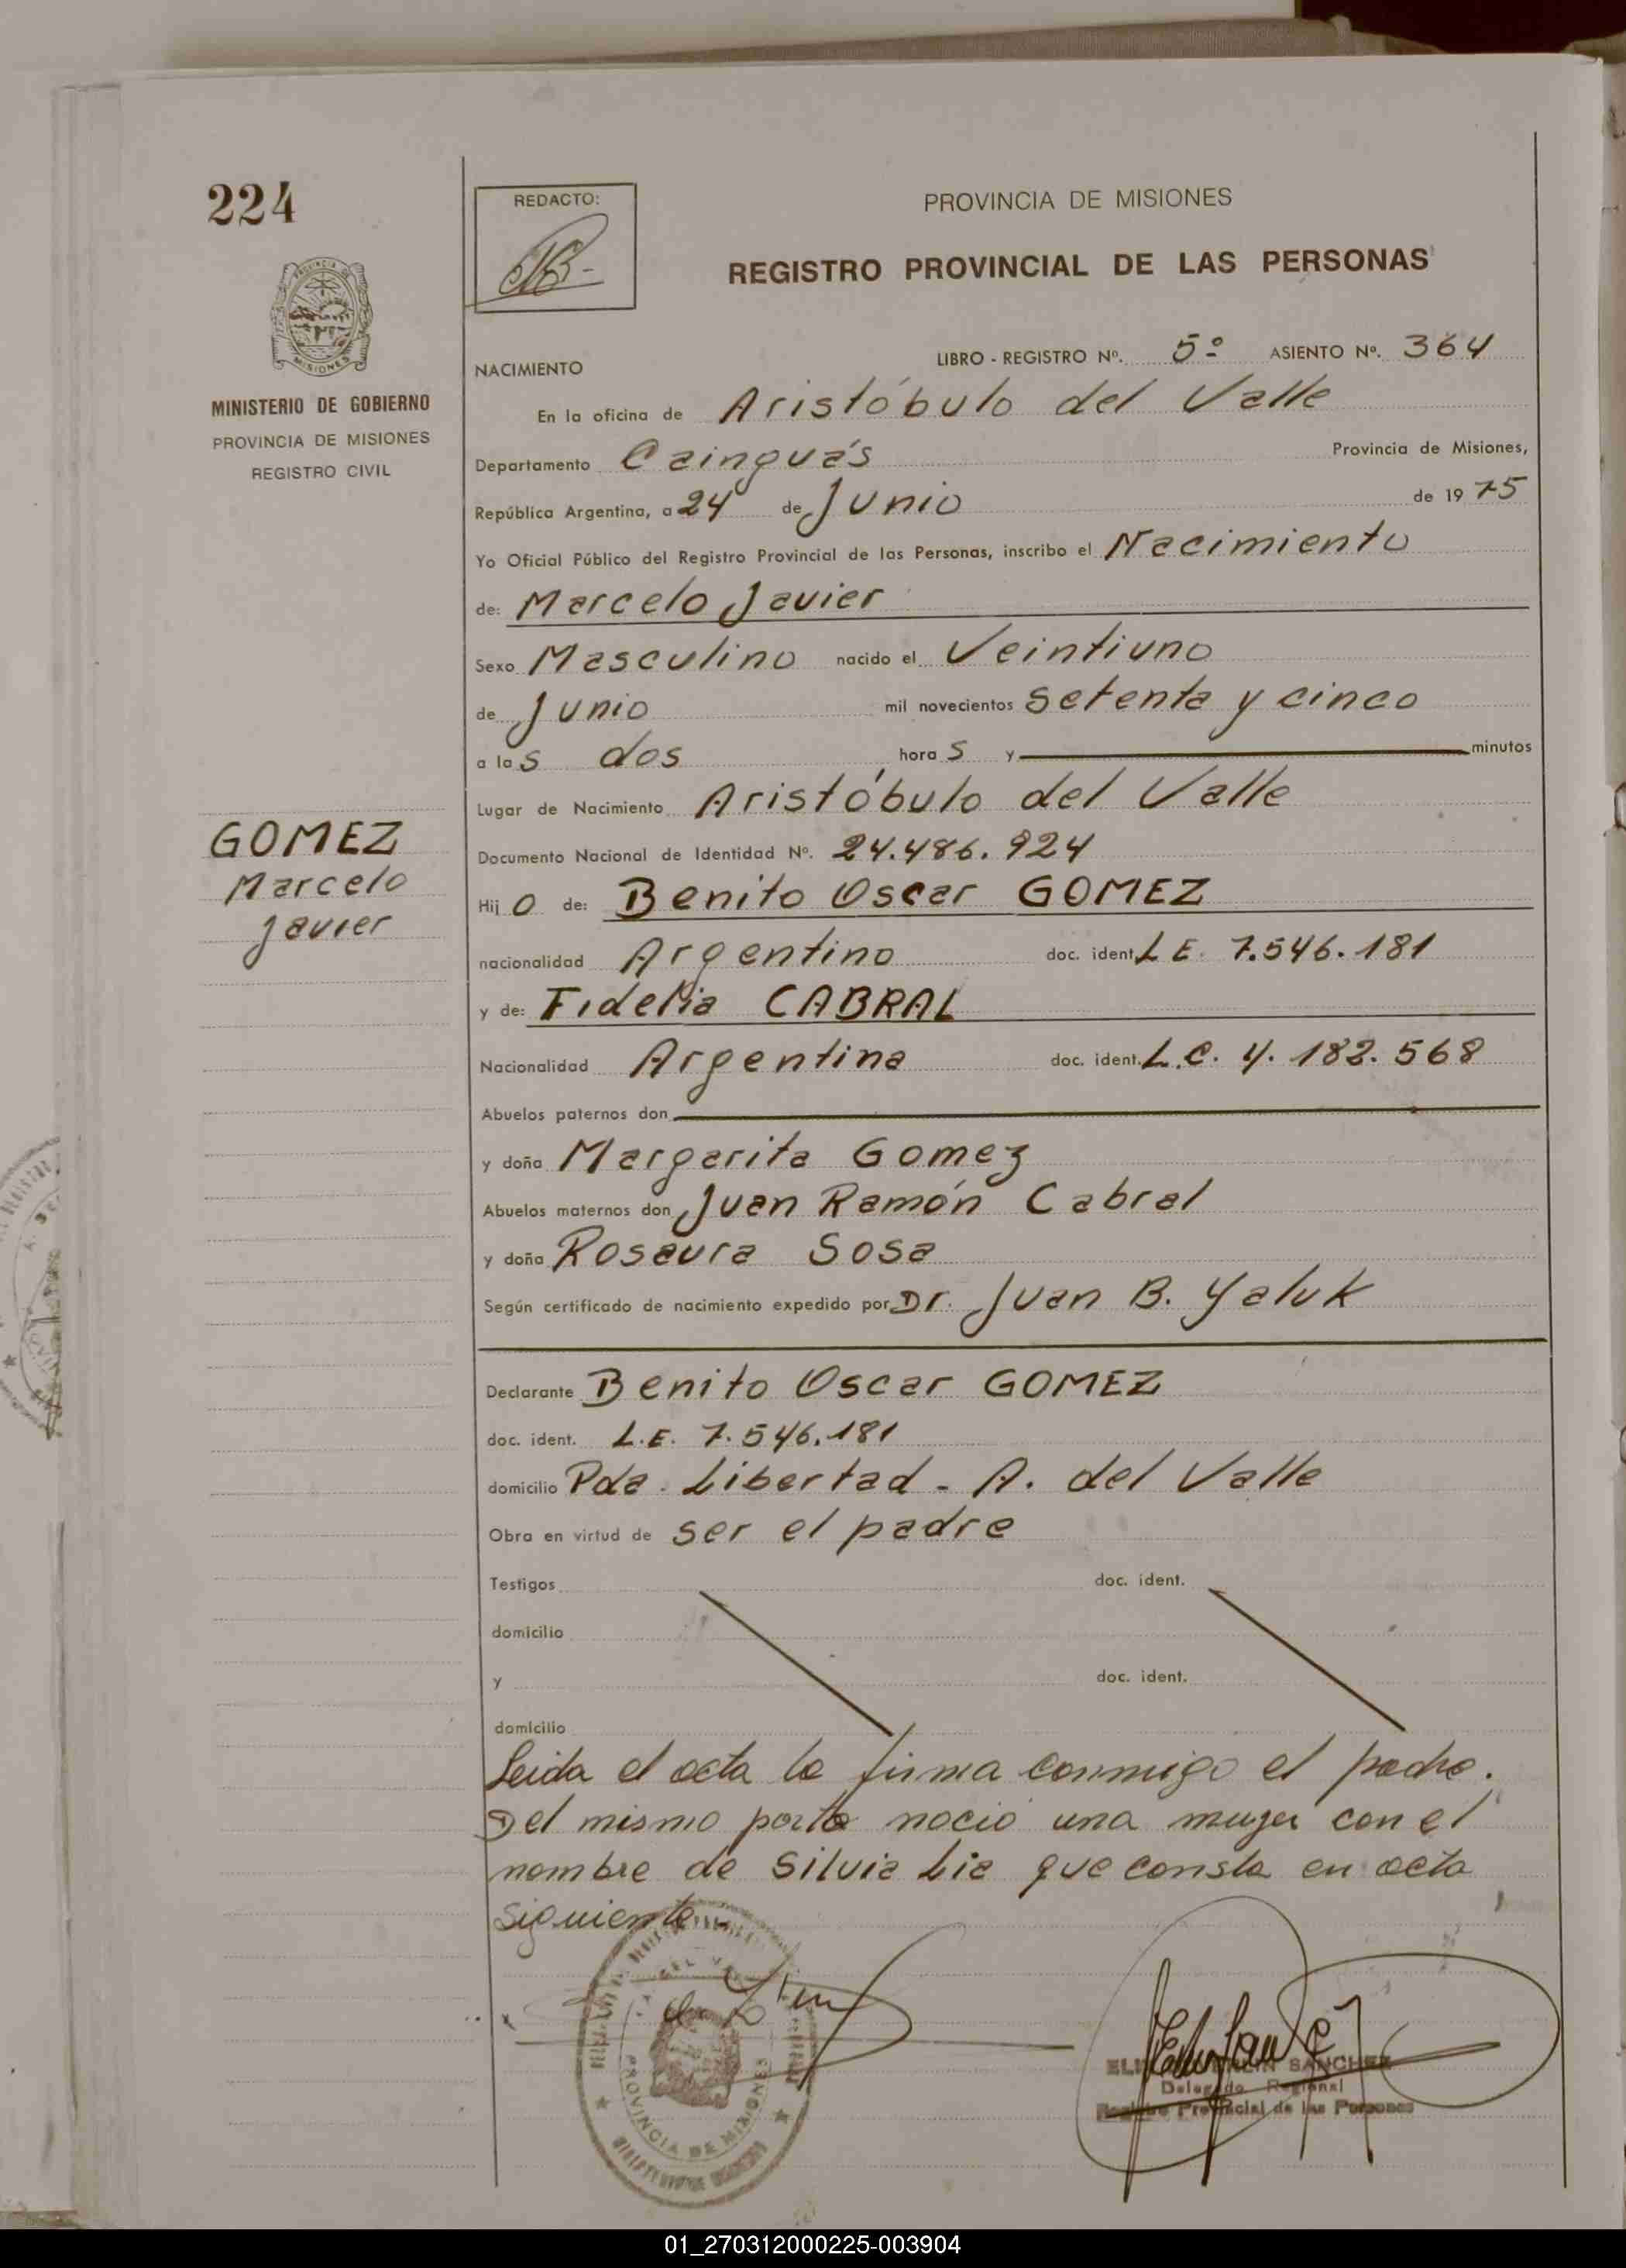 224
REDACTO:
PROVINCIA DE MISIONES
REGISTRO PROVINCIAL DE LAS PERSONAS
PROVINCIA DE
MISIONES
MINISTERIO DE GOBIERNO
PROVINCIA DE MISIONES
REGISTRO CIVIL
NACIMIENTO LIBRO - REGISTRO Nº. 5º ASIENTO Nº. 364
En la oficina de Aristóbulo del Valle
Departamento Cainguás Provincia de Misiones,
República Argentina, a 24 de Junio de 1975
Yo Oficial Público del Registro Provincial de las Personas, inscribo el Nacimiento
de: Marcelo Javier
Sexo Masculino nacido el Veintiuno
de Junio mil novecientos setenta y cinco
a las dos horas y minutos
Lugar de Nacimiento Aristóbulo del Valle
GOMEZ
Marcelo
Javier
Documento Nacional de Identidad Nº. 24.486.924
Hijo de: Benito Oscar GOMEZ
nacionalidad Argentino doc. ident. L E. 7.546.181
y de: Fidelia CABRAL
Nacionalidad Argentina doc. ident. L.C. 4.182.568
Abuelos paternos don
y doña Margarita Gomez
Abuelos maternos don Juan Ramón Cabral
y doña Rosaura Sosa
Según certificado de nacimiento expedido por Dr. Juan B. Yaluk
Declarante Benito Oscar GOMEZ
doc. ident. L.E. 7.546.181
domicilio Pda. Libertad - A. del Valle
Obra en virtud de ser el padre
Testigos doc. ident.
domicilio
y doc. ident.
domicilio
Leida el acta la firma conmigo el padre.
Del mismo parto nació una mujer con el
nombre de Silvia Lia que consta en acta
siguiente.-
PROVINCIA DE MISIONES
SANCHEZ
Delegado Regional
Registro Provincial de las Personas
01_270312000225-003904